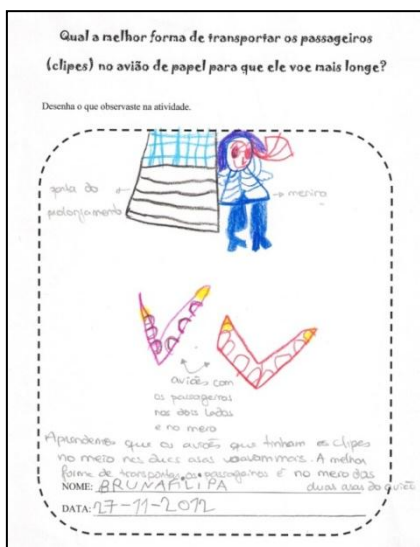 Qual a melhor forma de transportar os passageiros
(clipes) no avião de papel para que ele voe mais longe?
Desenha o que observaste na atividade.
porta do
prolongamento
menino
aviões com
os passageiros
nos dois lados
e no meio
Aprendemos que os aviões que tinham os clipes
no meio nas duas asas voavam mais. A melhor
forma de transportar os passageiros é no meio das
duas asas do avião
NOME: BRUNA FILIPA
DATA: 27-11-2012